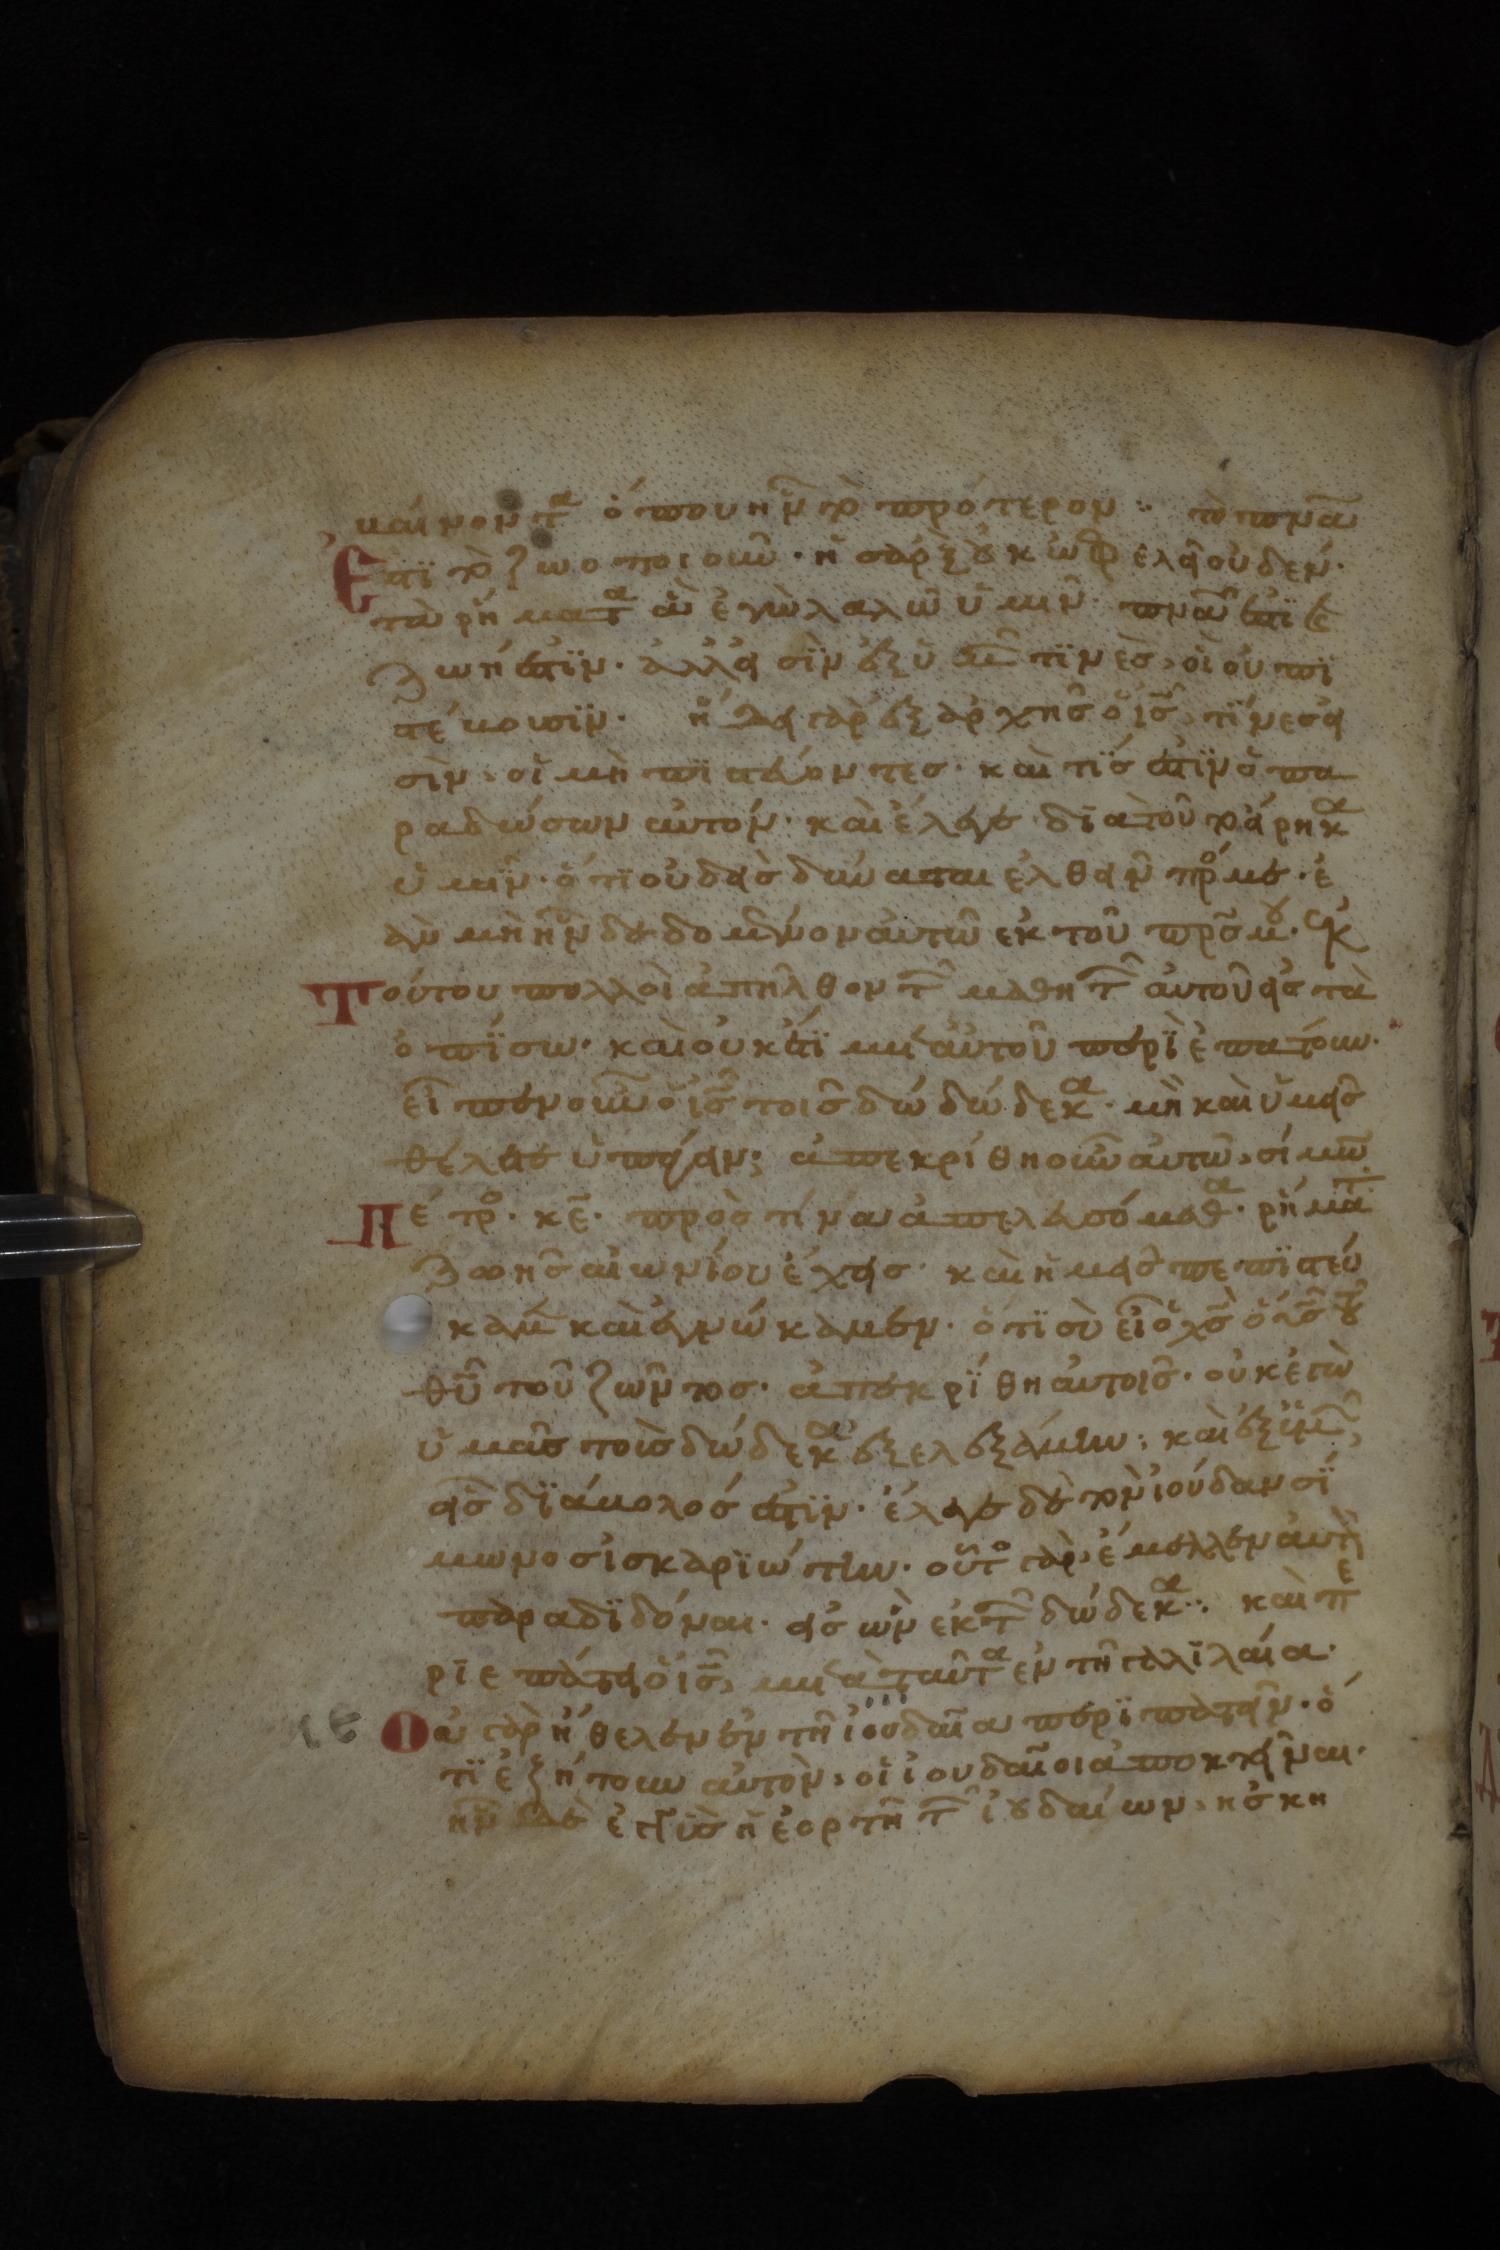 βαίνοντα ὅπου ἦν τὸ πρότερον·· τὸ πνᾶ
ἐστὶ τὸ ζωοποιοῦν· ἡ σὰρξ οὐκ ὠφελεῖ οὐδέν·
τὰ ρήματα ἃ ἐγὼ λαλῶ ὑμῖν· πνᾶ ἐστὶ καὶ
ζωή ἐστϊν· ἀλλ' εἰσὶν ἐξ ὑμῶν τϊνὲς, οἳ οὐ πϊ
στεύουσϊν· ἤδει γὰρ ἐξ ἀρχῆς ὁ ις, τίνες εἰ
σὶν, οἱ μὴ πϊστεύοντες· καὶ τΐς ἐστϊν ὁ πα
ραδώσων αὐτόν· καὶ ἔλεγε· δϊατοῦτο εἴρηκα
ὑμῖν· ὅτϊ οὐδεὶς δύναται ἐλθεῖν πρός με· ἐ
ὰν μὴ ἦν δεδομένον αὐτῶ ἐκ τοῦ πρς μου· ἐκ
Τούτου πολλοὶ ἀπῆλθον τῶν μαθητῶν αὐτοῦ εἰς τὰ
ὀπΐσω· καὶ οὐκέτϊ μετ' αὐτοῦ περϊεπάτουν·
εἶπεν οὖν ὁ ις τοῖς δώδεκα· μὴ καὶ ὑμεῖς
θέλετε ὑπάγειν; ἀπεκρίθη οὖν αὐτῶ, σίμων
Πέτρος· κε· πρὸς τίνα ἀπελευσόμεθα· ρήματα
ζωῆς αἰωνΐου ἔχεις· καὶ ἡμεῖς πεπϊστεύ
καμεν καὶ ἐγνώκαμεν· ὅτϊ σὺ εἶ ὁ χς ὁ υς τοῦ
θυ τοῦ ζῶντος· ἀπεκρΐθη αὐτοῖς· οὐκ ἐγὼ
ὑμᾶς τοὺς δώδεκα ἐξελεξάμην; καὶ ἐξ ὑμῶν,
εἷς δϊάβολός ἐστϊν· ἔλεγε δὲ τὸν ἰούδαν σΐ
μωνος ἰσκαρϊώτην· οὗτος γὰρ, ἔμελλεν αὐτὸν
παραδϊδόναι· εἷς ὢν ἐκ τῶν δώδεκα·· καὶ πε
ρϊεπάτει ὁ ις, μετὰ ταῦτα ἐν τῆ γαλϊλαία·
ιε Οὐ γὰρ ἤθελεν ἐν τῆ ἰουδαία περϊπατεῖν· ὅ
τϊ ἐζήτουν αὐτὸν, οἱ ἰουδαῖοι ἀποκτεῖναι·
ἦν δὲ ἐγγὺς ἡ ἑορτὴ τῶν ἰουδαίων, ἡ σκη